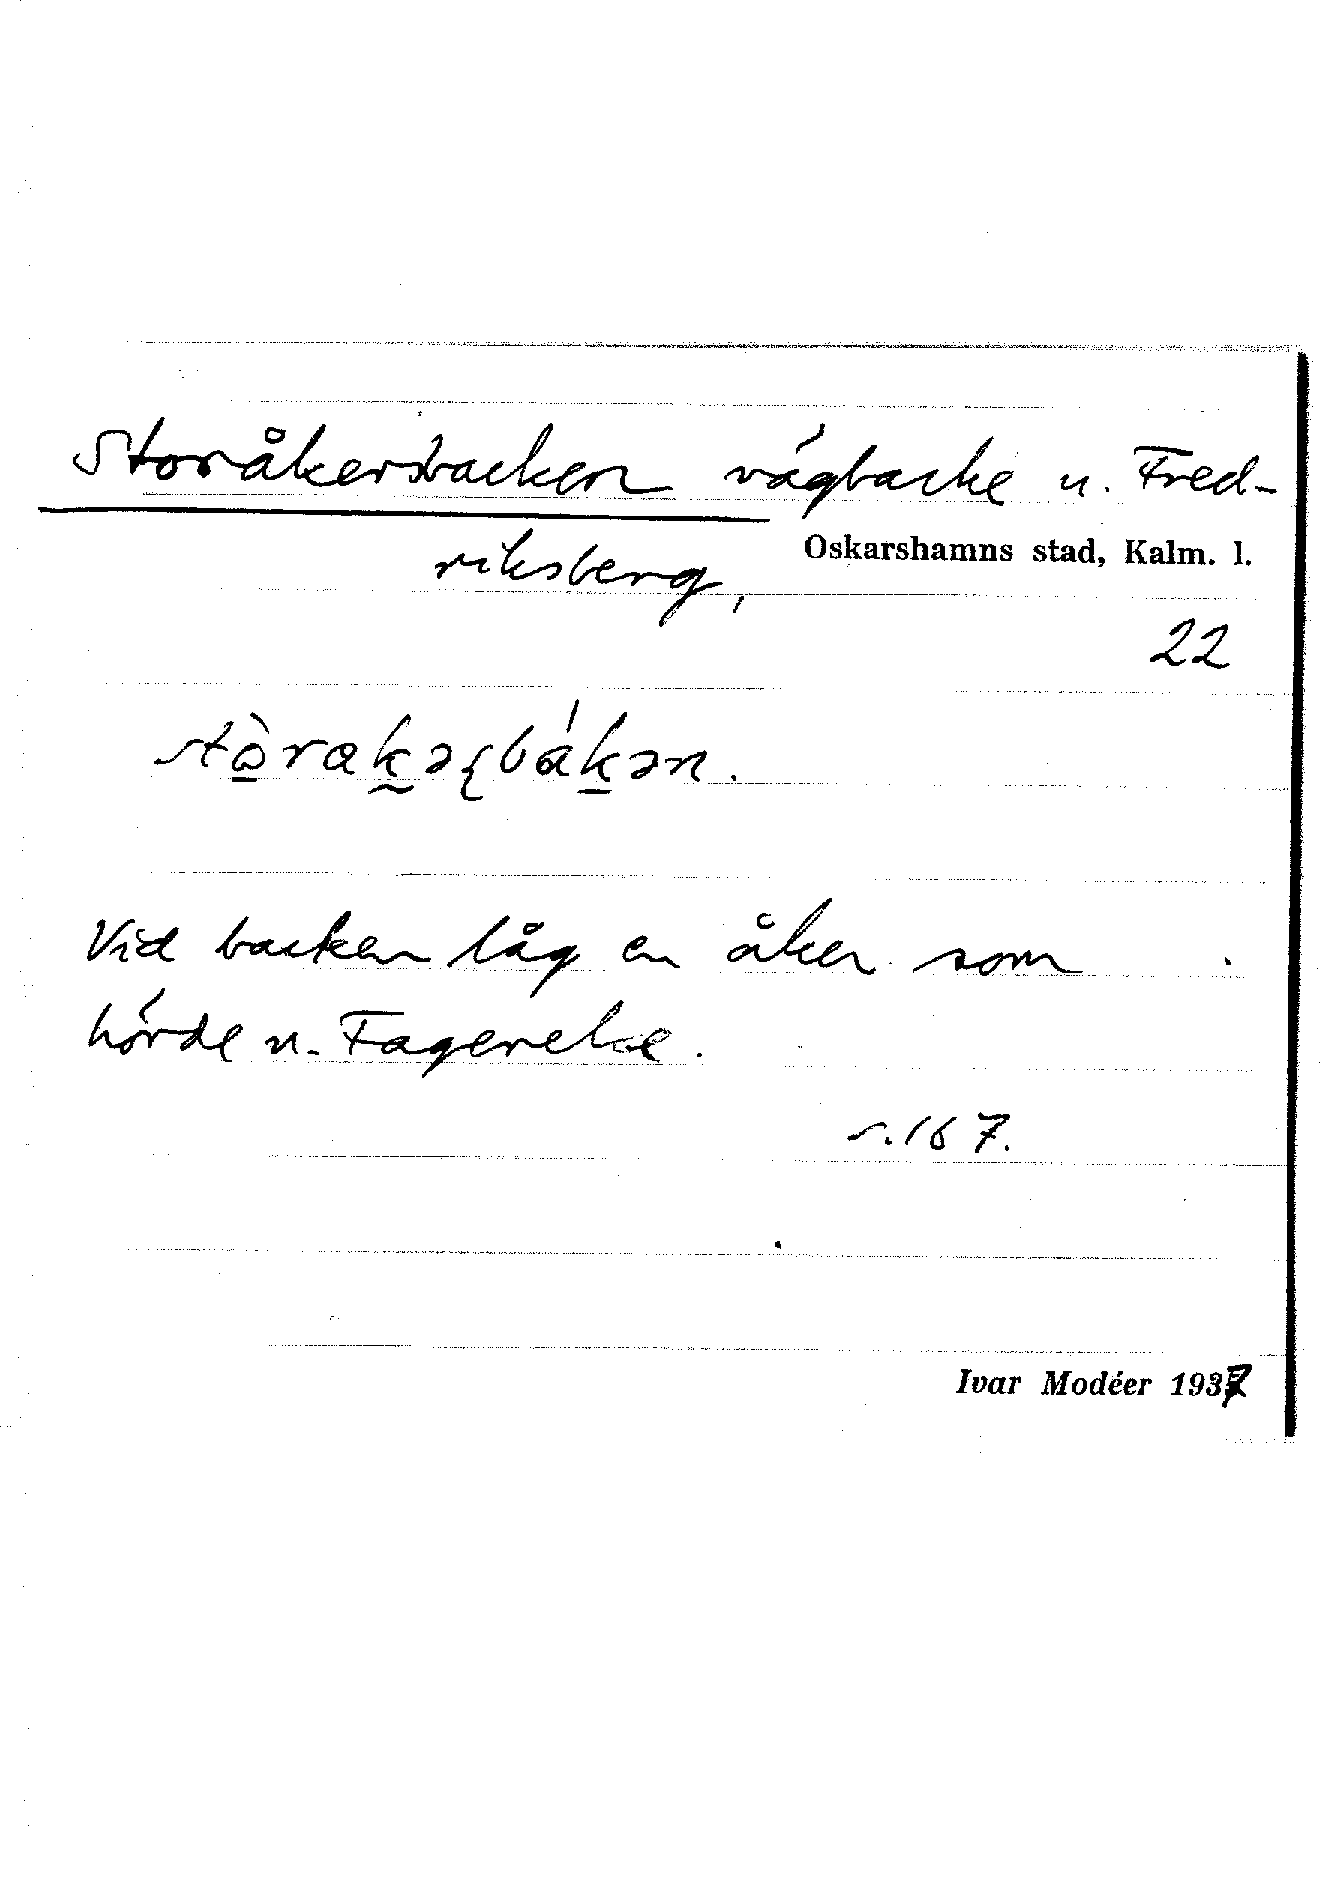 Storåkersbacken vägbacke u. Fred-
riksberg,
Oskarshamns stad, Kalm. l.
22
Vid backen låg en åker som
hörde u. Fagereke.
s. 167.
Ivar Modéer 1937